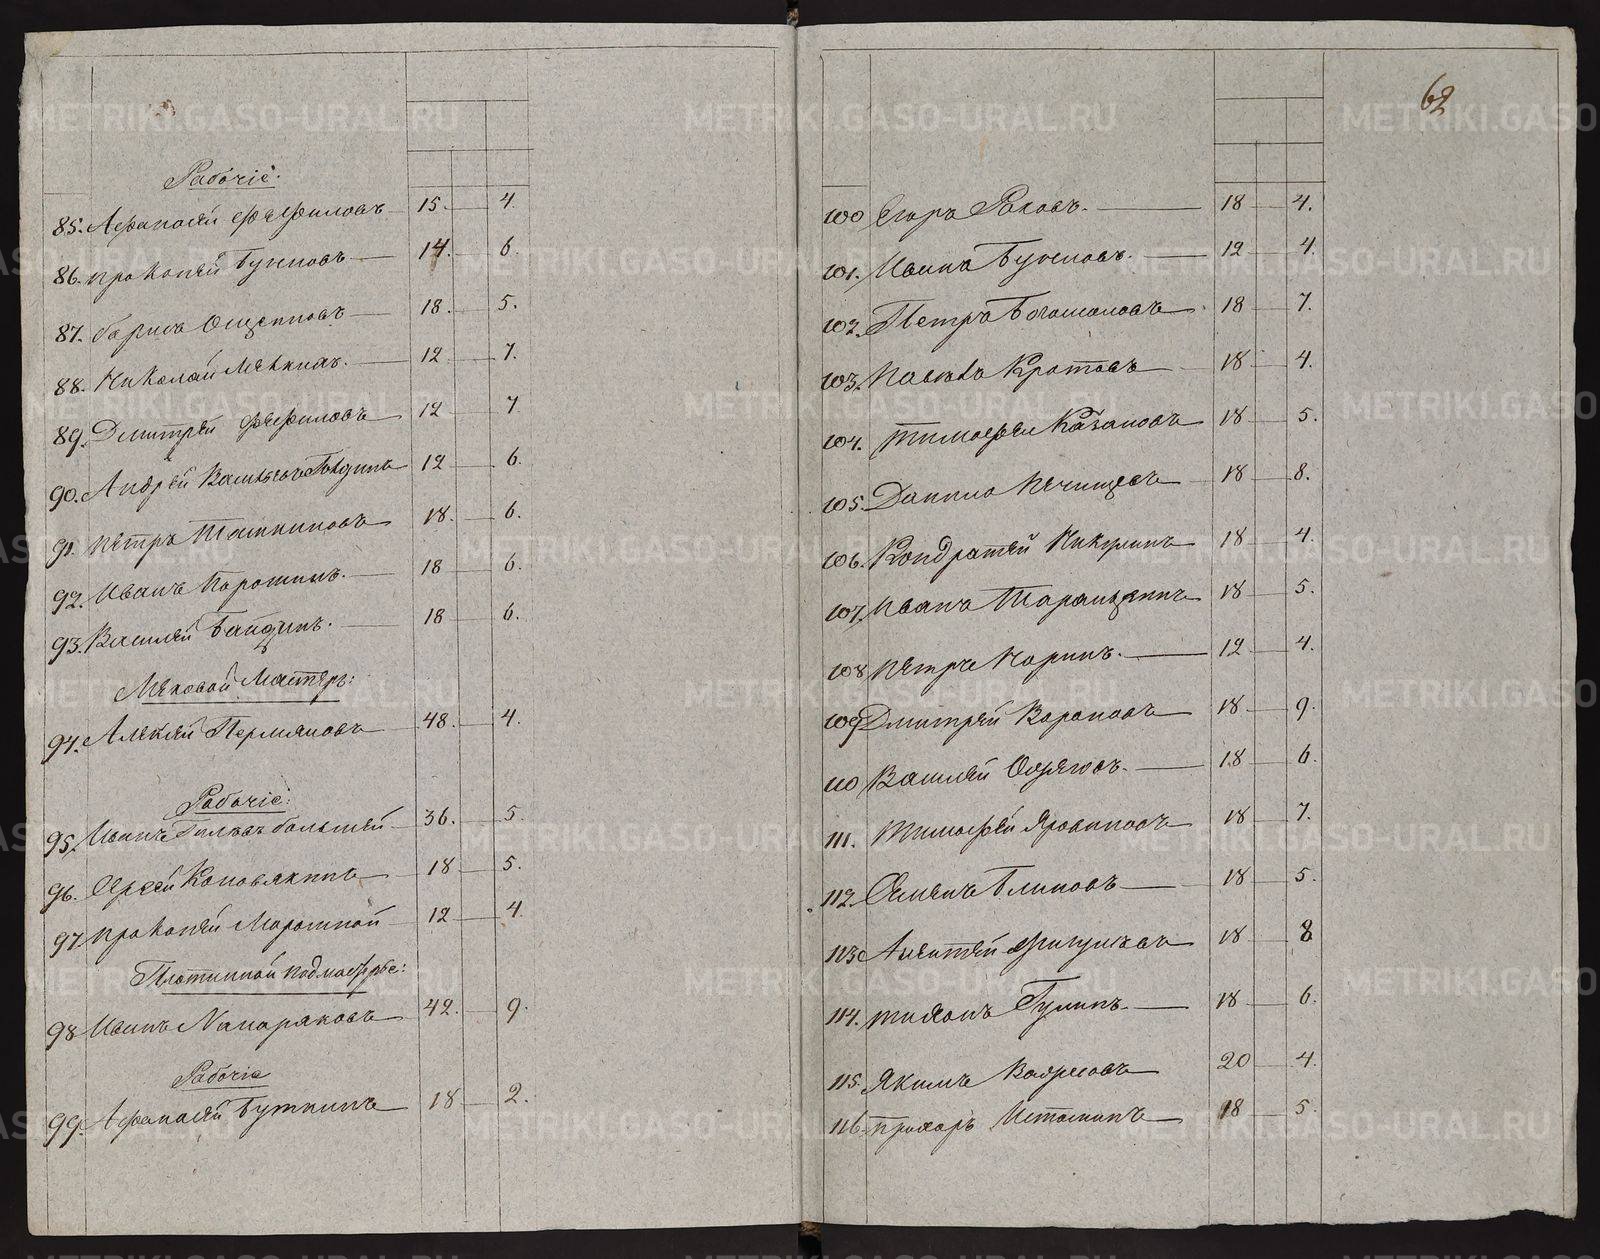 Рабочіе:
85. Афанасей Феофиловъ 15. 4.
86. Прокопей Бушновъ 14. 6.
87. Борисъ Ощепковъ 18. 5.
88. Николай Мѣкхих. 12 7.
89. Дмитрей Феофиловъ 12 7
90. Андрей Васильевъ Бабдинъ 12 6.
91. Петръ Ташкиновъ 18. 6.
92. Иванъ Порошинъ. 18 6.
93. Василей Байдинъ. 18 6.
Мѣховой Мастеръ:
94. Алексей Пермяковъ 48. 4.
Рабочіе:
95. Иванъ Гилевъ большей 36. 5.
96. Сергей Коновякинъ 18 5.
97 Прокопей Марошной 12 4.
Плотинной подмастерье:
98 Иванъ Напаряковъ 42. 9.
Рабочіе
99. Афанасей Буткинъ 18 2.
62
100 Егоръ Раковъ. 18 4.
101. Иванъ Бушновъ. 12 4.
102. Петръ Богомоловъ 18 7.
103. Павелъ Кротовъ 18 4.
104. Тимофей Казановъ 18 5.
105. Данило Печищевъ 18 8.
106. Кондратей Никулинъ 18 4.
107. Иванъ 18 5.
108 Петръ Норинъ. 12 4.
109 Дмитрей Вороновъ 18 9.
110 Василей 18 6.
111. Тимофей Яровиковъ 18 7.
112. Семенъ Блиновъ 18 5.
113 18 8
114. Тихонъ Гулинъ. 18 6.
115. Якимъ 20 4.
116. Прохоръ Истоминъ 18 5.
METRIKI.GASO-URAL.RU